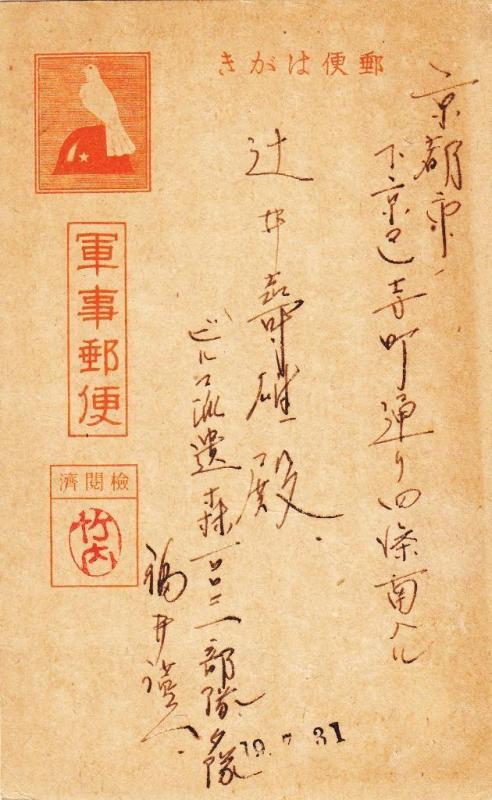 郵便はがき
京都市
下京区寺町通り四條南入ル
辻井壽雄殿
ビルマ派遣森一〇二部隊夕隊
福井
軍事郵便
檢閲濟
竹内
19.7.31